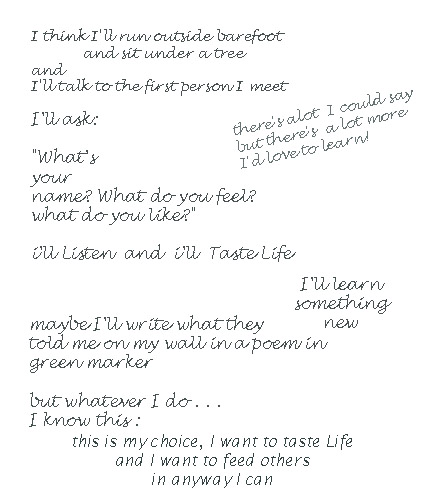 I think I'll run outside barefoot
and sit under a tree
and
I'll talk to the first person I meet
I'll ask:
there's alot I could say
but there's a lot more
I'd love to learn!
"What's
your
name? What do you feel?
what do you like?"
i'll Listen and i'll Taste Life
I'll learn
something
new
maybe I'll write what they
told me on my wall in a poem in
green marker
but whatever I do . . .
I know this :
this is my choice, I want to taste Life
and I want to feed others
in anyway I can